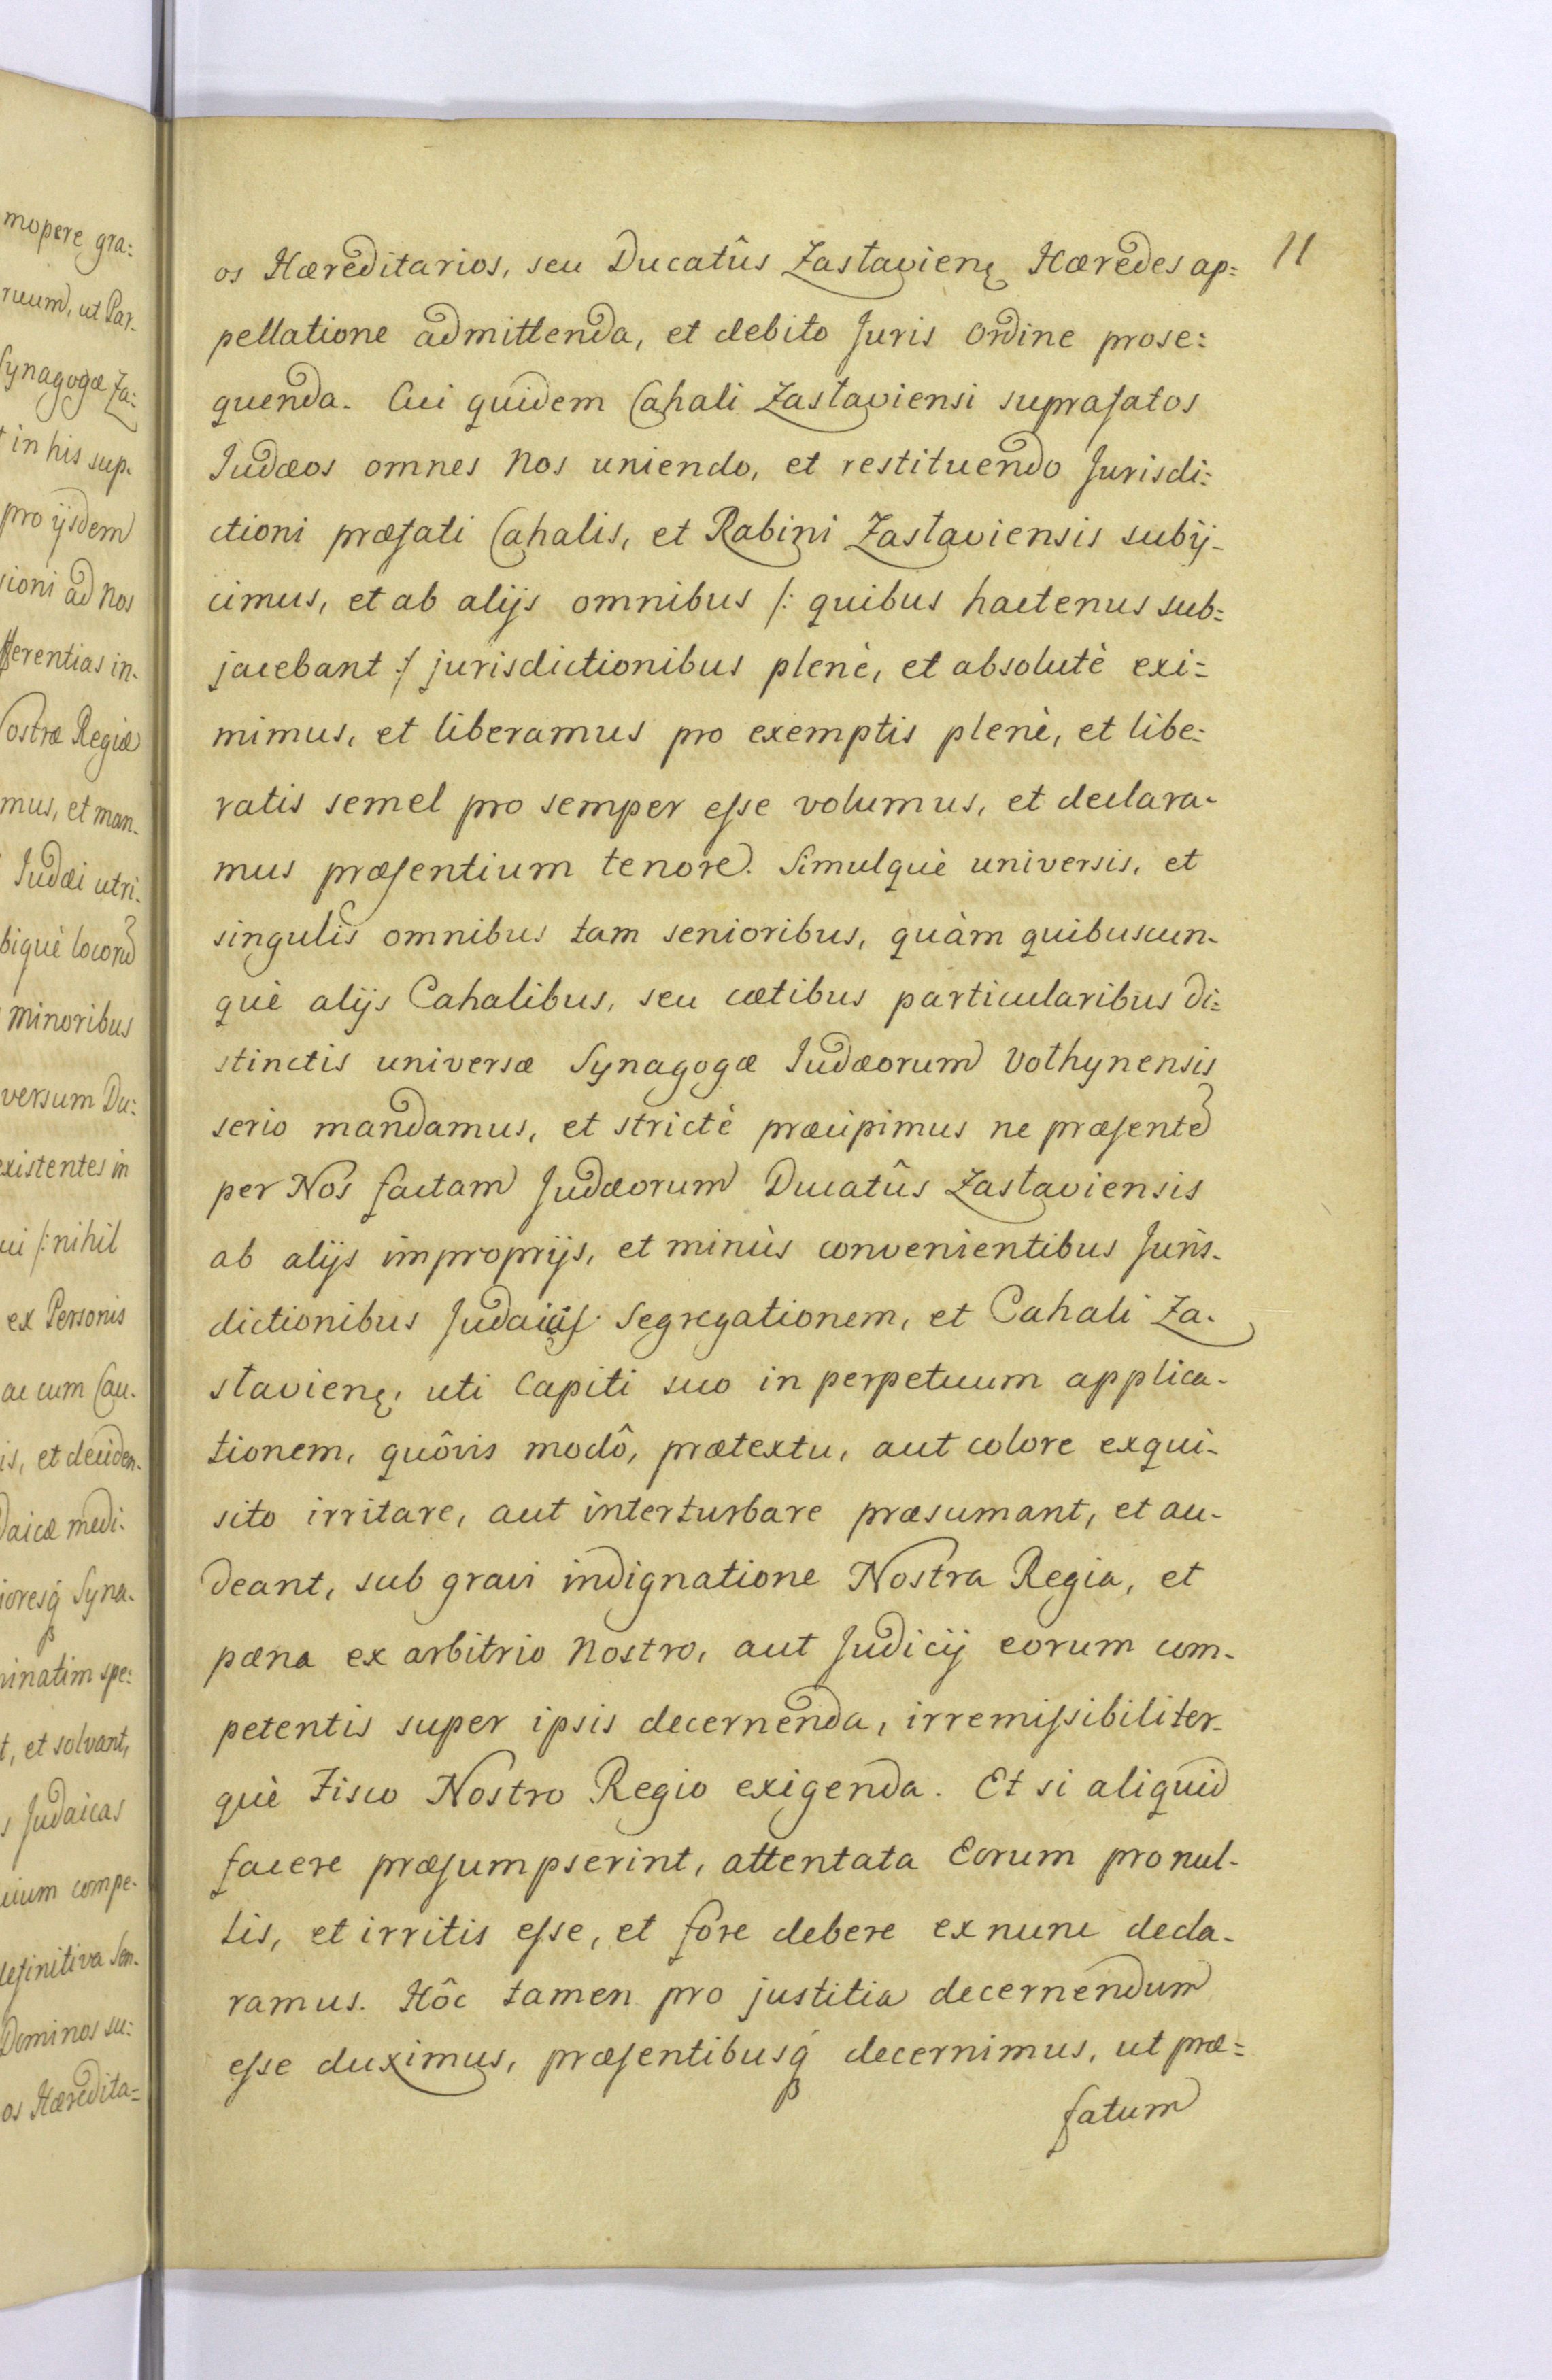 mopere gra:
ruum, ut Par-
Synagogæ Za:
in his sup.
pro ijsdem
sioni ad nos
fferentias in-
Nostræ Regiæ
mus, et man-
Judæi utri-
bique locorũ
minoribus
versum Du:
existentes in
/: nihil
ex Personis
ac cum Cau-
is, et deciden-
daicæ medi-
ioresq Syna-
minatim spe:
t, et solvant,
s Judaicas
cium compe-
definitiva Sen-
Dominos su:
os Hæredita=
11
os Hæreditarios, seu Ducatûs Zastavienę Hæredes ap:
pellatione admittenda, et debito Juris Ordine prose:
quenda. Cui quidem Cahali Zastaviensi suprafatos
Judæos omnes Nos uniendo, et restituendo Jurisdi:
ctioni præfati Cahalis, et Rabini Zastaviensis subij-
cimus, et ab alijs omnibus /: quibus hactenus sub:
jacebant :/ jurisdictionibus plenè, et absolutè exi:
mimus, et liberamus pro exemptis plenè, et libe:
ratis semel pro semper esse volumus, et declara-
mus præsentium tenore. Simulquè universis, et
singulis omnibus tam senioribus, quàm quibuscun-
què alijs Cahalibus, seu cœtibus particularibus di:
stinctis universæ Synagogæ Judæorum Vothynensis
serio mandamus, et strictè præcipimus ne præsentẽ
per Nos factam Judæorum Ducatûs Zastaviensis
ab alijs improprijs, et minùs convenientibus Juris-
dictionibus Judaicis Segregationem, et Cahali Za-
stavienę, uti Capiti suo in perpetuum applica-
tionem, quôvis modô, prætextu, aut colore exqui-
sito irritare, aut interturbare præsumant, et au-
deant, sub gravi indignatione Nostra Regia, et
pœna ex arbitrio Nostro, aut Judicij eorum com-
petentis super ipsis decernenda, irremissibiliter-
què Fisco Nostro Regio exigenda. Et si aliquid
facere præsumpserint, attentata Eorum pro nul-
lis, et irritis esse, et fore debere ex nunc decla-
ramus. Hôc tamen pro justitia decernendum
esse duximus, præsentibusq decernimus, ut præ=
fatum